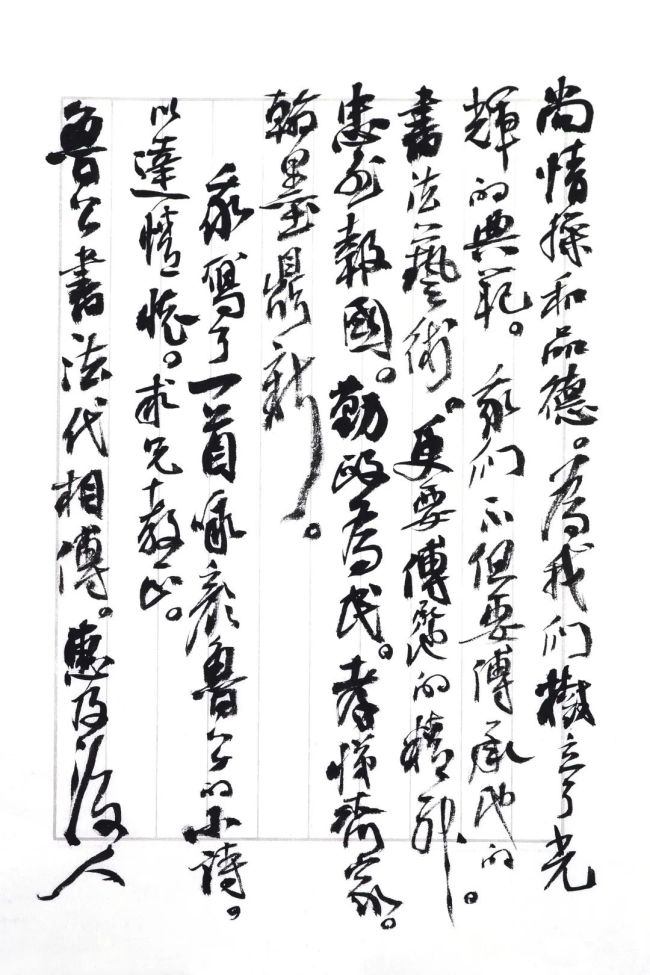 尚情操和品德。為我们樹立了光
輝的典範。我们不但要傳承他的
書法藝術。更要傳承他的精神。
忠烈報國。勤政為民。孝悌齊家。
翰墨鼎新。
我寫了一首咏颜魯公的小詩。
以達情怀。求兄十教正。
魯公書法代相傳。惠及後人